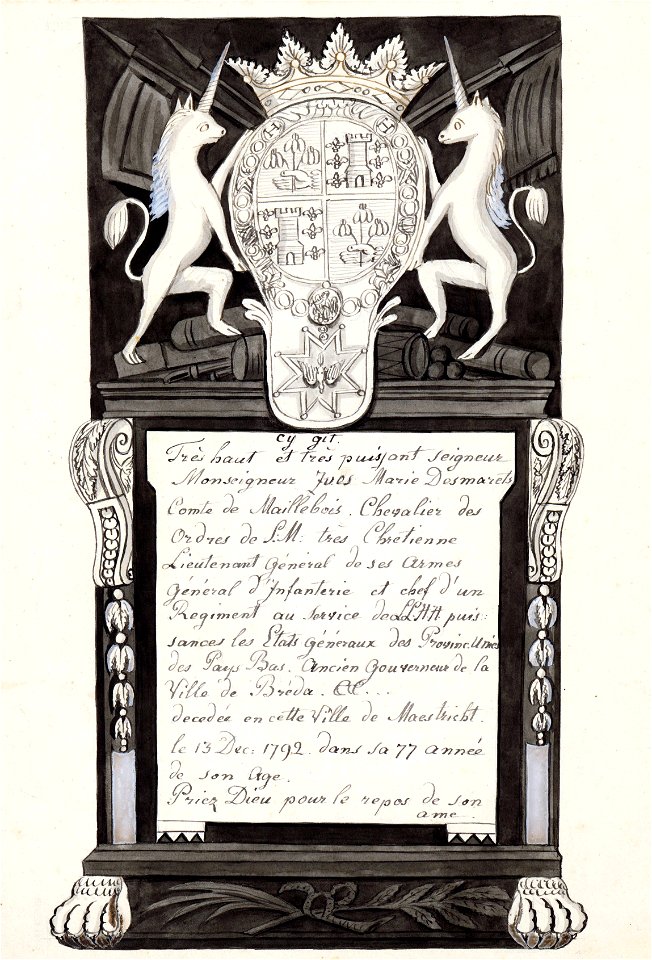 cy git.
Très haut et très puissant seigneur
Monseigneur Yves Marie Desmarets
Comte de Maillebois. Chevalier des
Ordres de S.M: très Chrétienne
Lieutenant Général de ses Armes
général d'Infanterie et chef d'un
Regiment au service de LLHH puis:
sances les Etats généraux des Provinc. Unies
des Pays Bas. Ancien Gouverneur de la
Ville de Bréda. &c...
decedée en cette Ville de Maestricht.
le 13 Dec: 1792. dans sa 77 année
de son Age.
Priez Dieu pour le repos de son
ame.